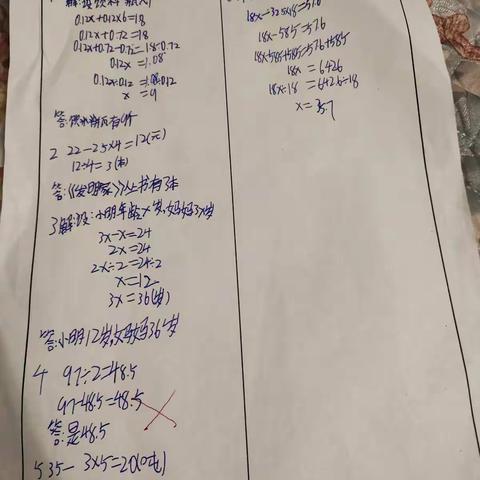 解:设饮料
0.12x+0.12x6=1.8
0.12x+0.72=1.8
0.12x+0.72-0.72=1.8-0.72
0.12x=1.08
0.12x÷0.12=1.08÷0.12
x=9
2 22-2.5x4=12(元)
12÷4=3(本)
答:《发明家》丛书有3本
3解设:小明年龄x岁,妈妈3x岁
3x-x=24
2x=24
2x÷2=24÷2
x=12
3x=36(岁)
答:小明12岁,妈妈36岁
4 97÷2=48.5
97-48.5=48.5
答:是48.5
5 35-3x5=20(吨)
18x-58.5=576
18x-58.5+58.5=576+58.5
x=35.7